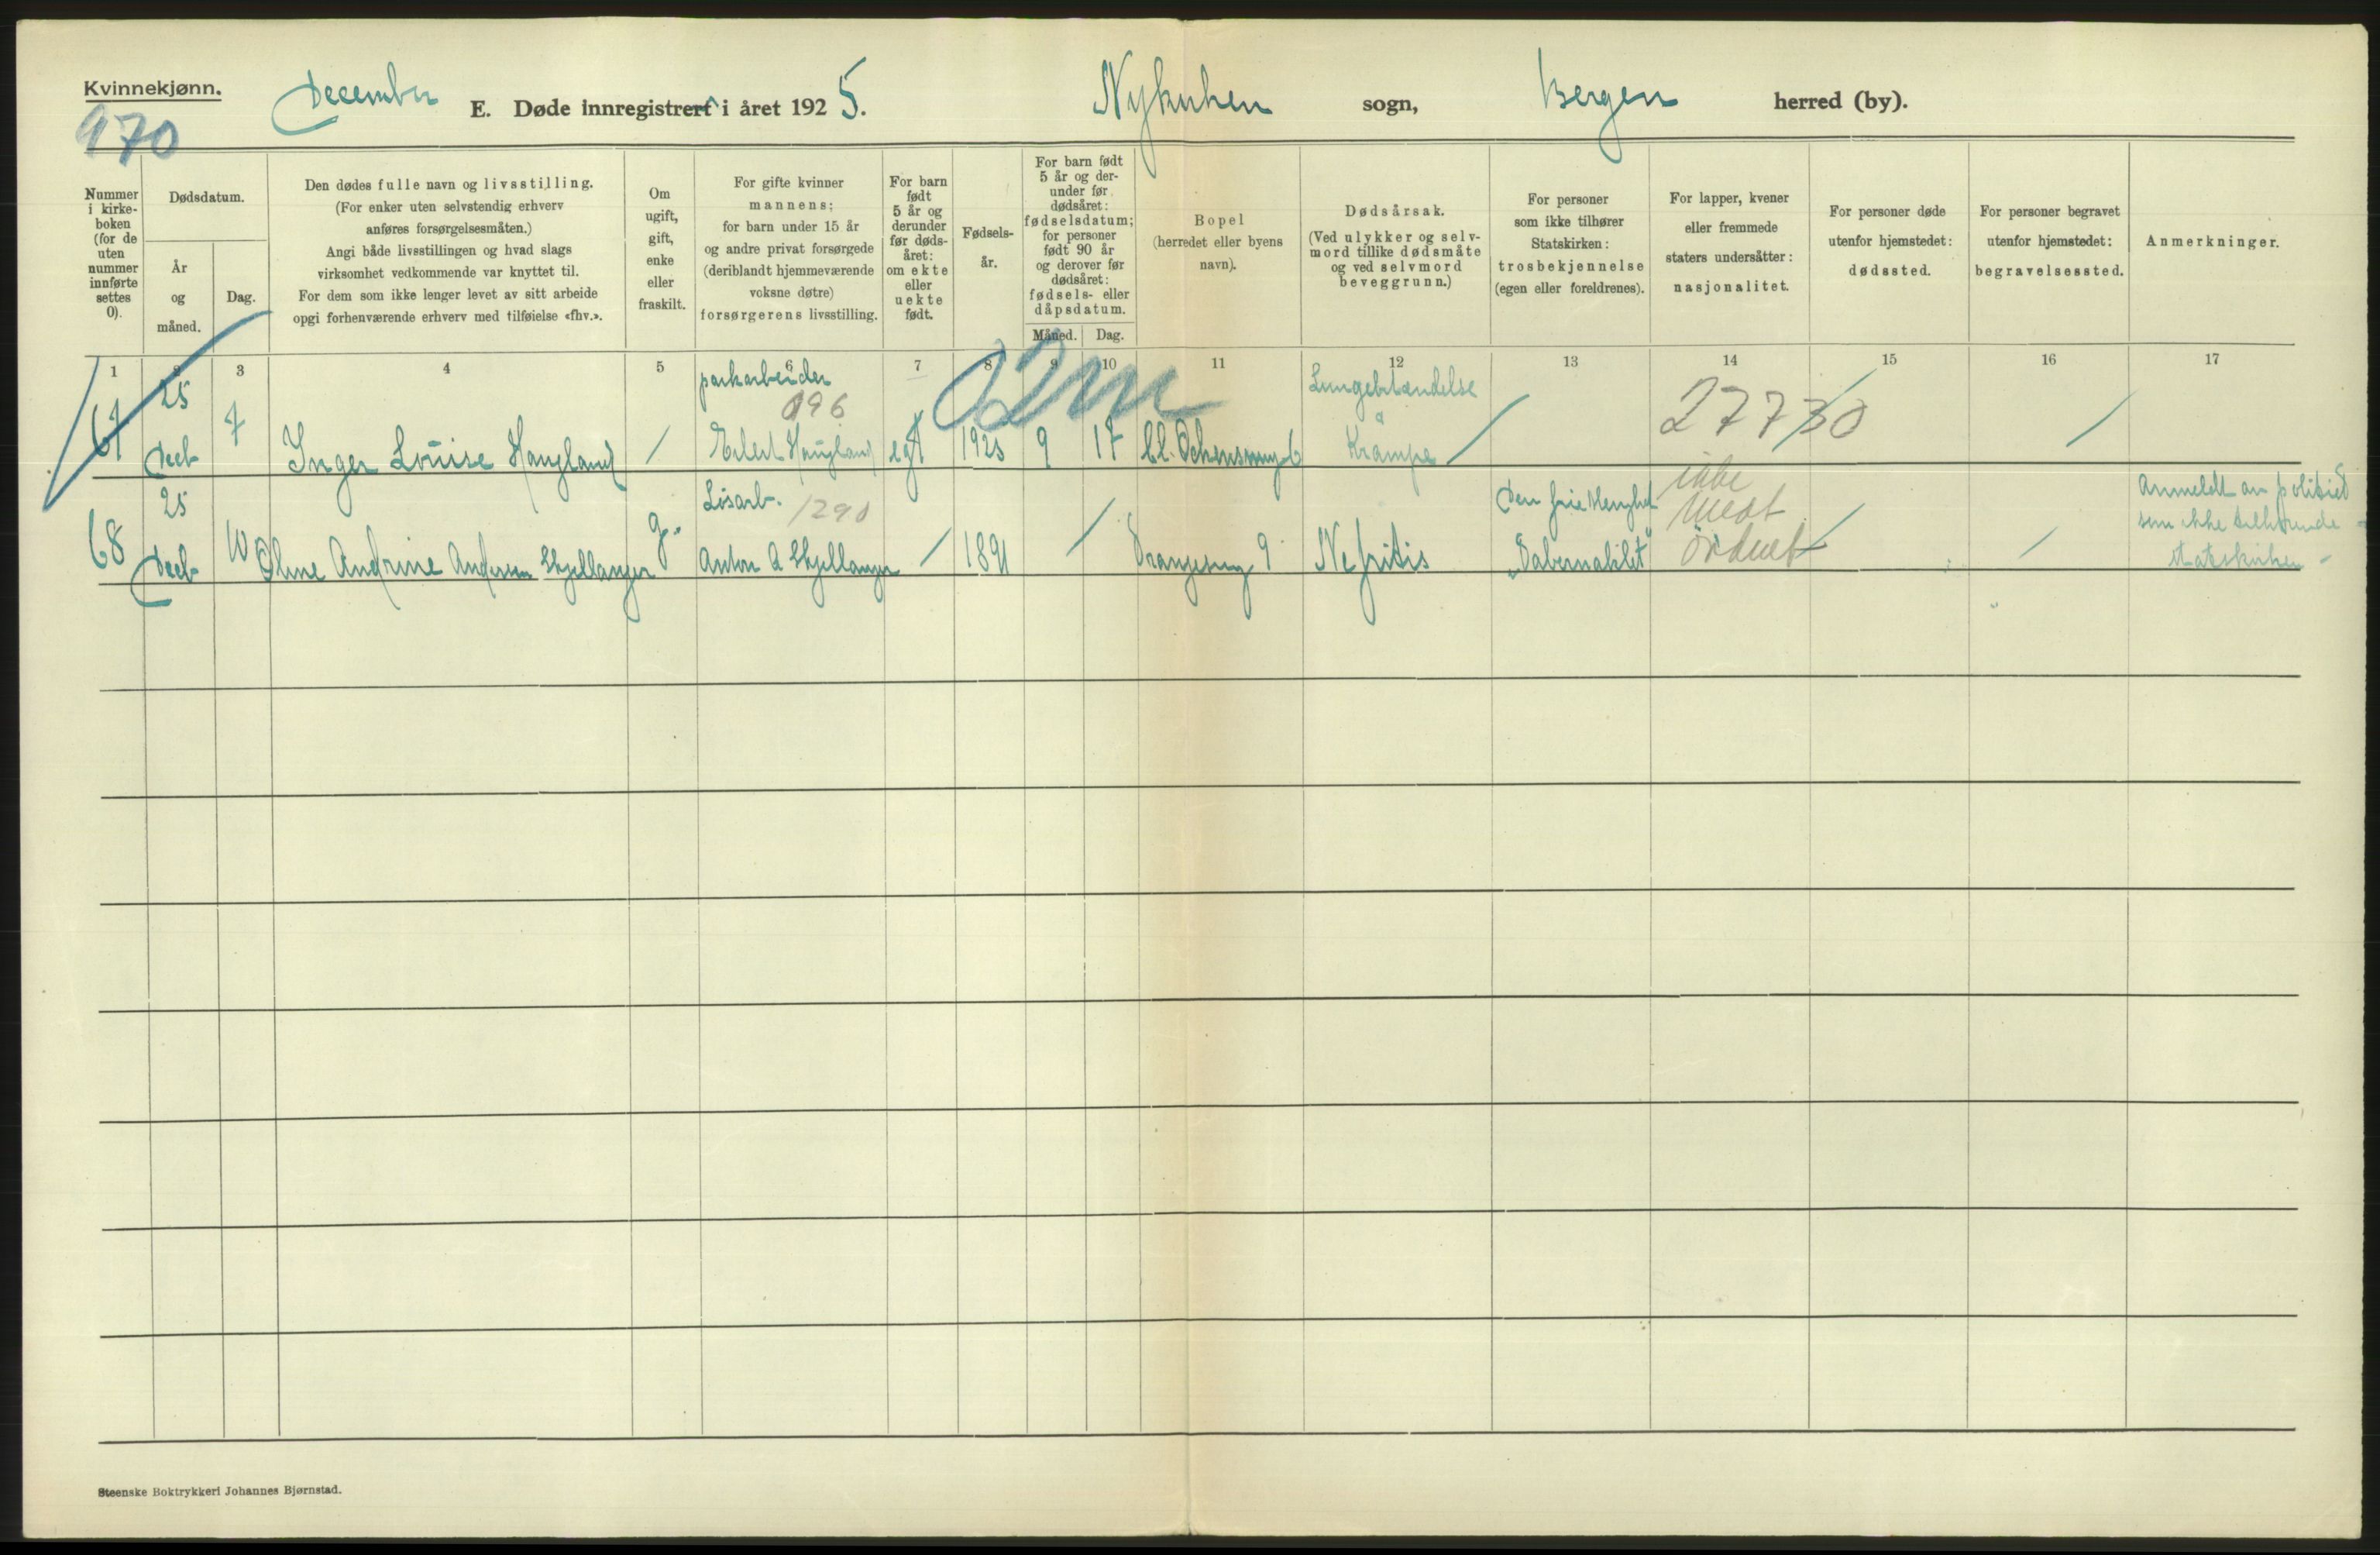 Kvinnekjønn.
December
E. Døde innregistrert i året 1925.
Nykirken sogn, Bergen herred (by).
970
Nummer i kirke-boken (for de uten nummer innførte settes 0).
Dødsdatum.
År og måned.
Dag.
Den dødes fulle navn og livsstilling.
(For enker uten selvstendig erhverv
anføres forsørgelsesmåten.)
Angi både livsstillingen og hvad slags
virksomhet vedkommende var knyttet til.
For dem som ikke lenger levet av sitt arbeide
opgi forhenværende erhverv med tilføielse «fhv.».
Om
ugift,
gift,
enke
eller
fraskilt.
For gifte kvinner
mannens;
for barn under 15 år
og andre privat forsørgede
(deriblandt hjemmeværende
voksne døtre)
forsørgerens livsstilling.
For barn
født
5 år og
derunder
før døds-
året:
om ekte
eller
uekte
født.
Fødsels-
år.
For barn født
5 år og der-
under før
dødsåret:
fødselsdatum;
for personer
født 90 år
og derover før
dødsåret:
fødsels- eller
dåpsdatum.
Måned. Dag.
Bopel
(herredet eller byens
navn).
Dødsårsak.
(Ved ulykker og selv-
mord tillike dødsmåte
og ved selvmord
beveggrunn.)
For personer
som ikke tilhører
Statskirken:
trosbekjennelse
(egen eller foreldrenes).
For lapper, kvener
eller fremmede
staters undersåtter:
nasjonalitet.
For personer døde
utenfor hjemstedet:
dødssted.
For personer begravet
utenfor hjemstedet:
begravelsessted.
Anmerkninger.
1 2 3 4 5 6 7 8 9 10 11 12 13 14 15 16 17
25 parkarbeider Lungebetændelse
096 02m 27730
67 Decb 7 Inger Louise Haugland / Haugland egt 1925 9 17 Krampe / /
25 Løsarb. 1290 Den frie ikke Anmeldt av politiet
mest som ikke tilhørende
68 Decb 10 Oline Andrine Andersen Skjellanger g. Anton A Skjellanger / 1891 / 9 Nefritis „Tabernaklet" ordnet / / statskirken -
Steenske Boktrykkeri Johannes Bjørnstad.